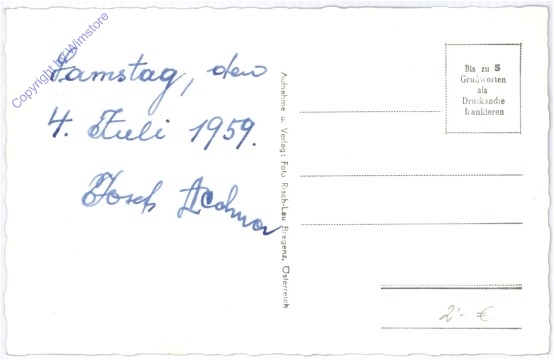 Copyright by Wimstore
Samstag, den
4. Juli 1959.
Josef
Aufnahme u. Verlag: Foto Risch-Lau Bregenz, Österreich
Bis zu 5
Grußworten
als
Drucksache
frankieren
2'- €